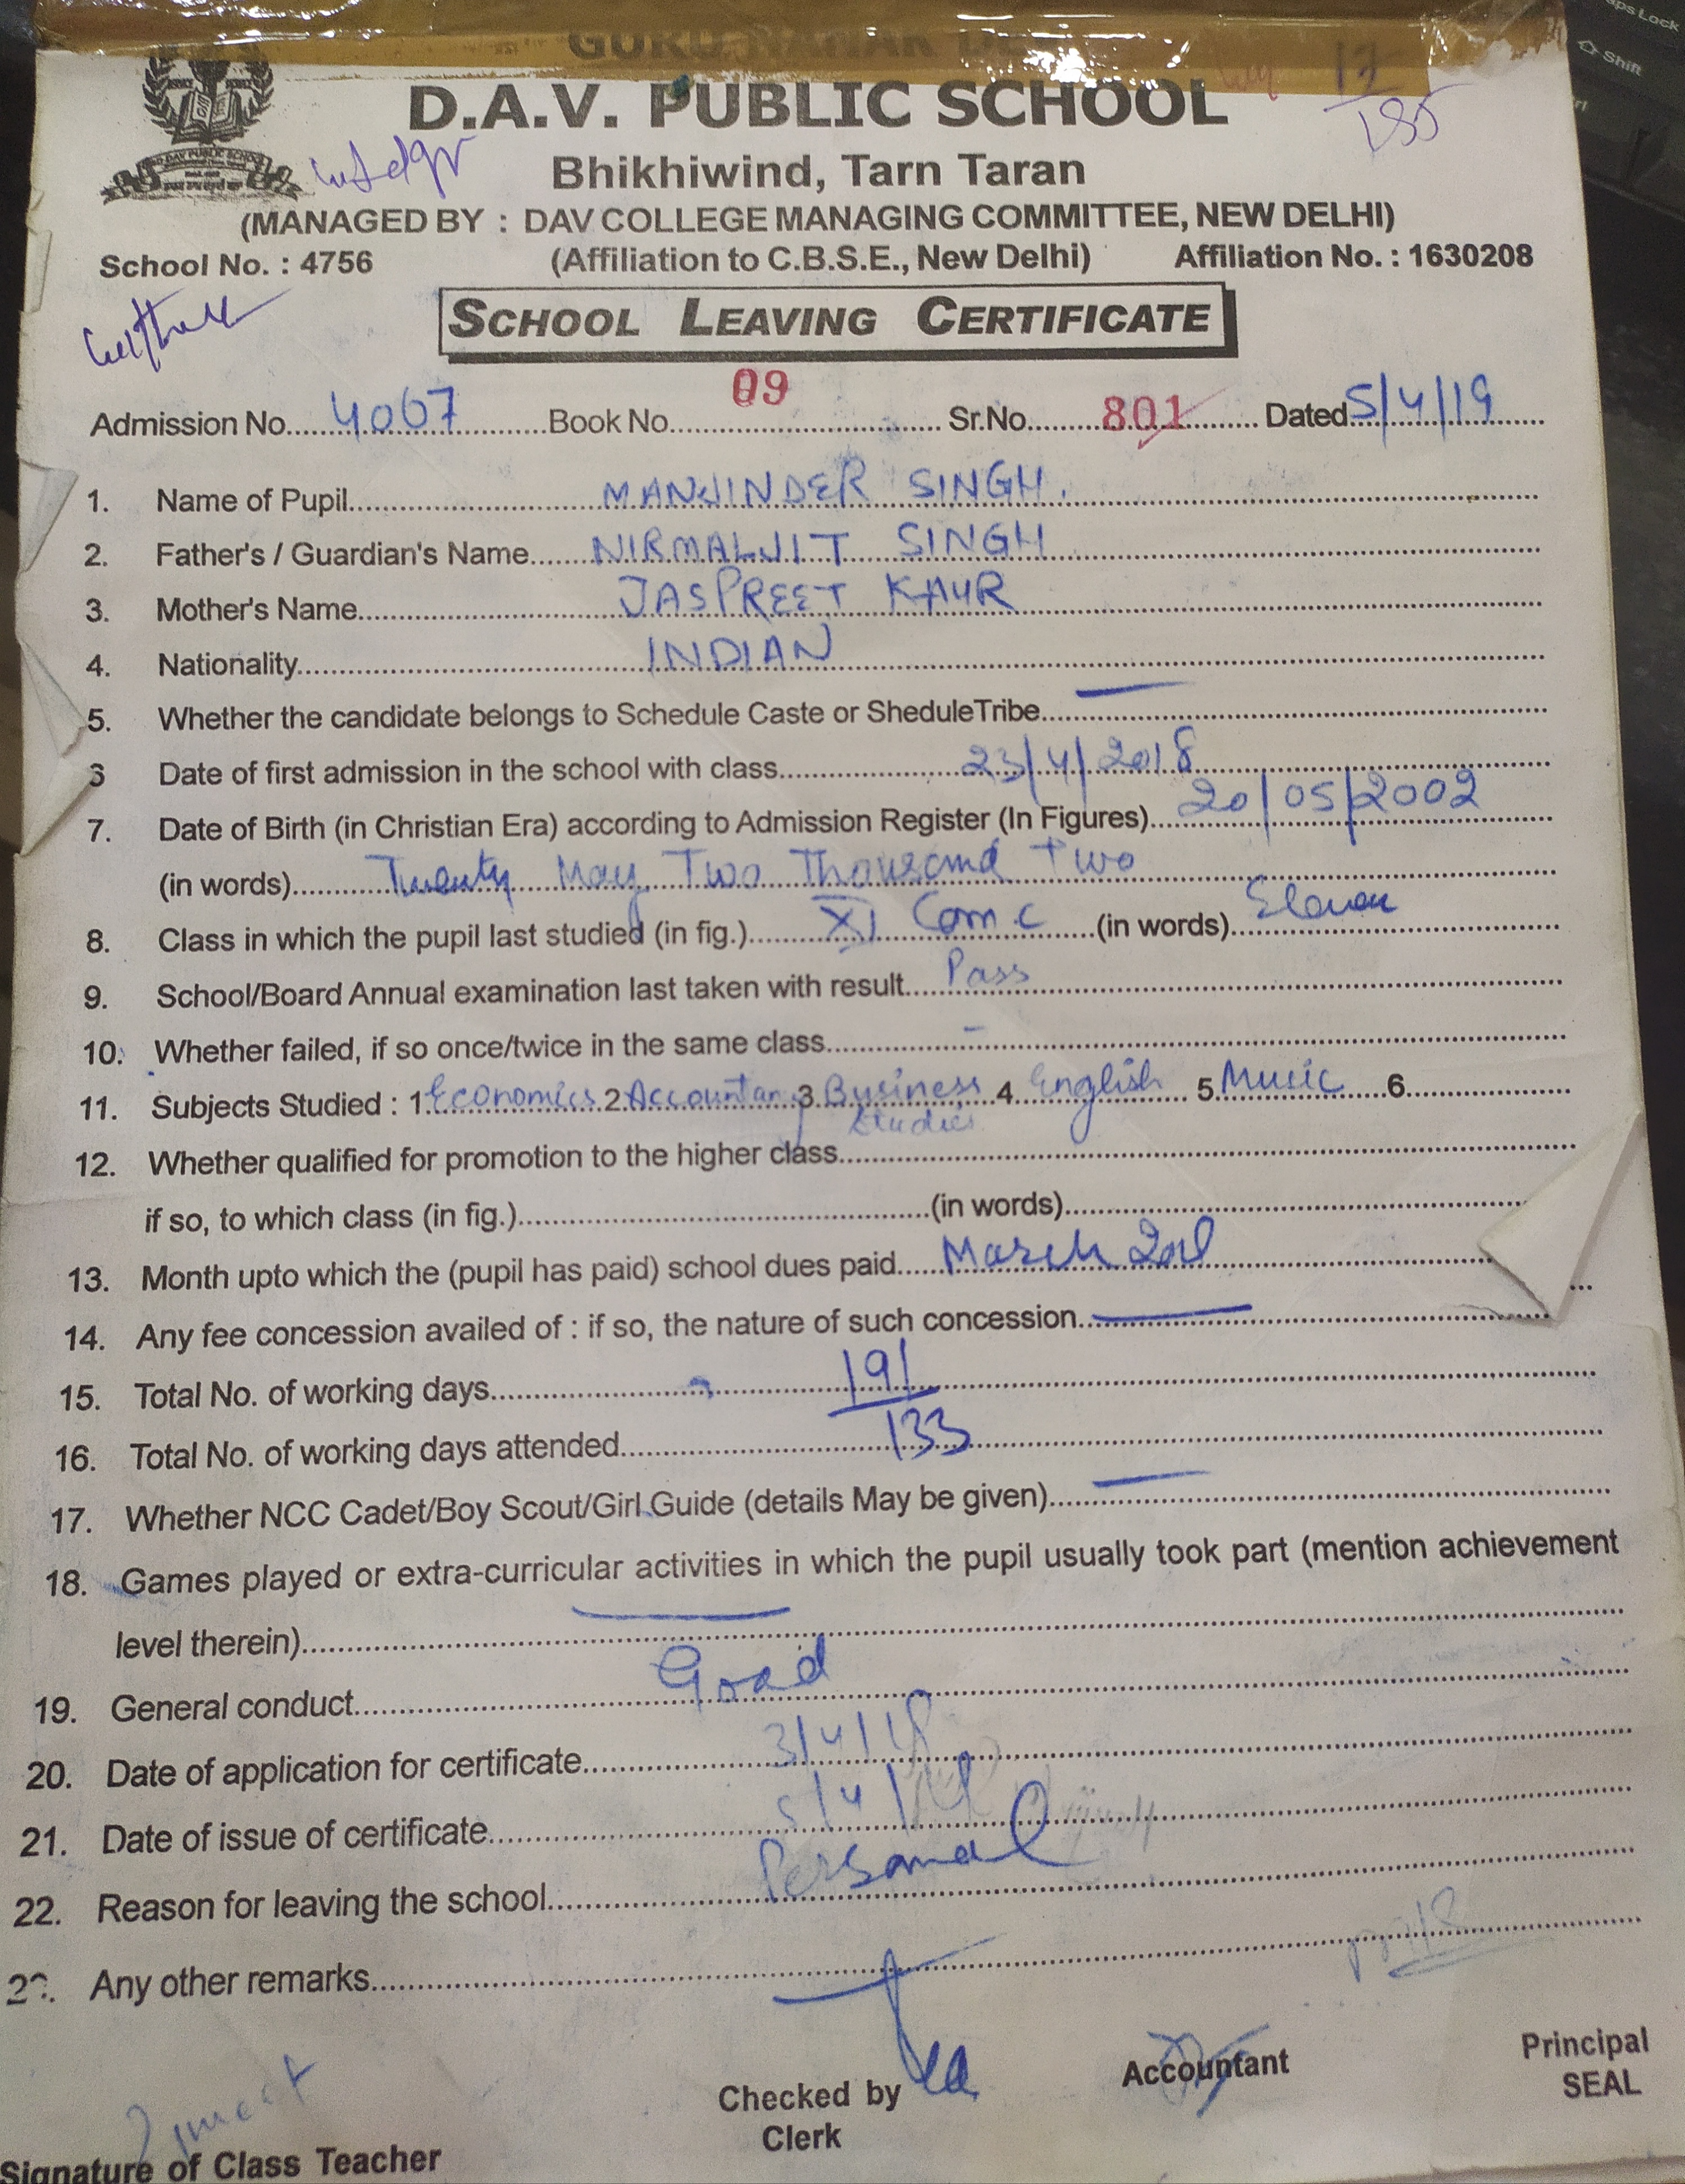 GURU NANAK DE
D.A.V. PUBLIC SCHOOL
Bhikhiwind, Tarn Taran
(MANAGED BY : DAV COLLEGE MANAGING COMMITTEE, NEW DELHI)
School No. : 4756 (Affiliation to C.B.S.E., New Delhi) Affiliation No. : 1630208
SCHOOL LEAVING CERTIFICATE
Admission No. 4067 Book No. 09 Sr.No. 801 Dated 5/4/19
1. Name of Pupil MANJINDER SINGH.
2. Father's / Guardian's Name NIRMALJIT SINGH
3. Mother's Name JASPREET KAUR
4. Nationality INDIAN
5. Whether the candidate belongs to Schedule Caste or SheduleTribe —
6 Date of first admission in the school with class 23/4/2018
7. Date of Birth (in Christian Era) according to Admission Register (In Figures) 20/05/2002
(in words) Twenty May Two Thousand Two
8. Class in which the pupil last studied (in fig.) XI Com.c (in words) Eleven
9. School/Board Annual examination last taken with result Pass
10. Whether failed, if so once/twice in the same class -
11. Subjects Studied : 1 Economics 2 Accountancy 3 Business Studies 4 English 5 Music 6
12. Whether qualified for promotion to the higher class
if so, to which class (in fig.) (in words)
13. Month upto which the (pupil has paid) school dues paid March
14. Any fee concession availed of : if so, the nature of such concession —
15. Total No. of working days 191
16. Total No. of working days attended 133
17. Whether NCC Cadet/Boy Scout/Girl Guide (details May be given) —
18. Games played or extra-curricular activities in which the pupil usually took part (mention achievement
level therein) —
19. General conduct Good
20. Date of application for certificate 3/4/19
21. Date of issue of certificate 5/4/19
22. Reason for leaving the school Personal
23. Any other remarks —
Signature of Class Teacher Checked by Accountant Principal
Clerk SEAL
Caps Lock
Shift